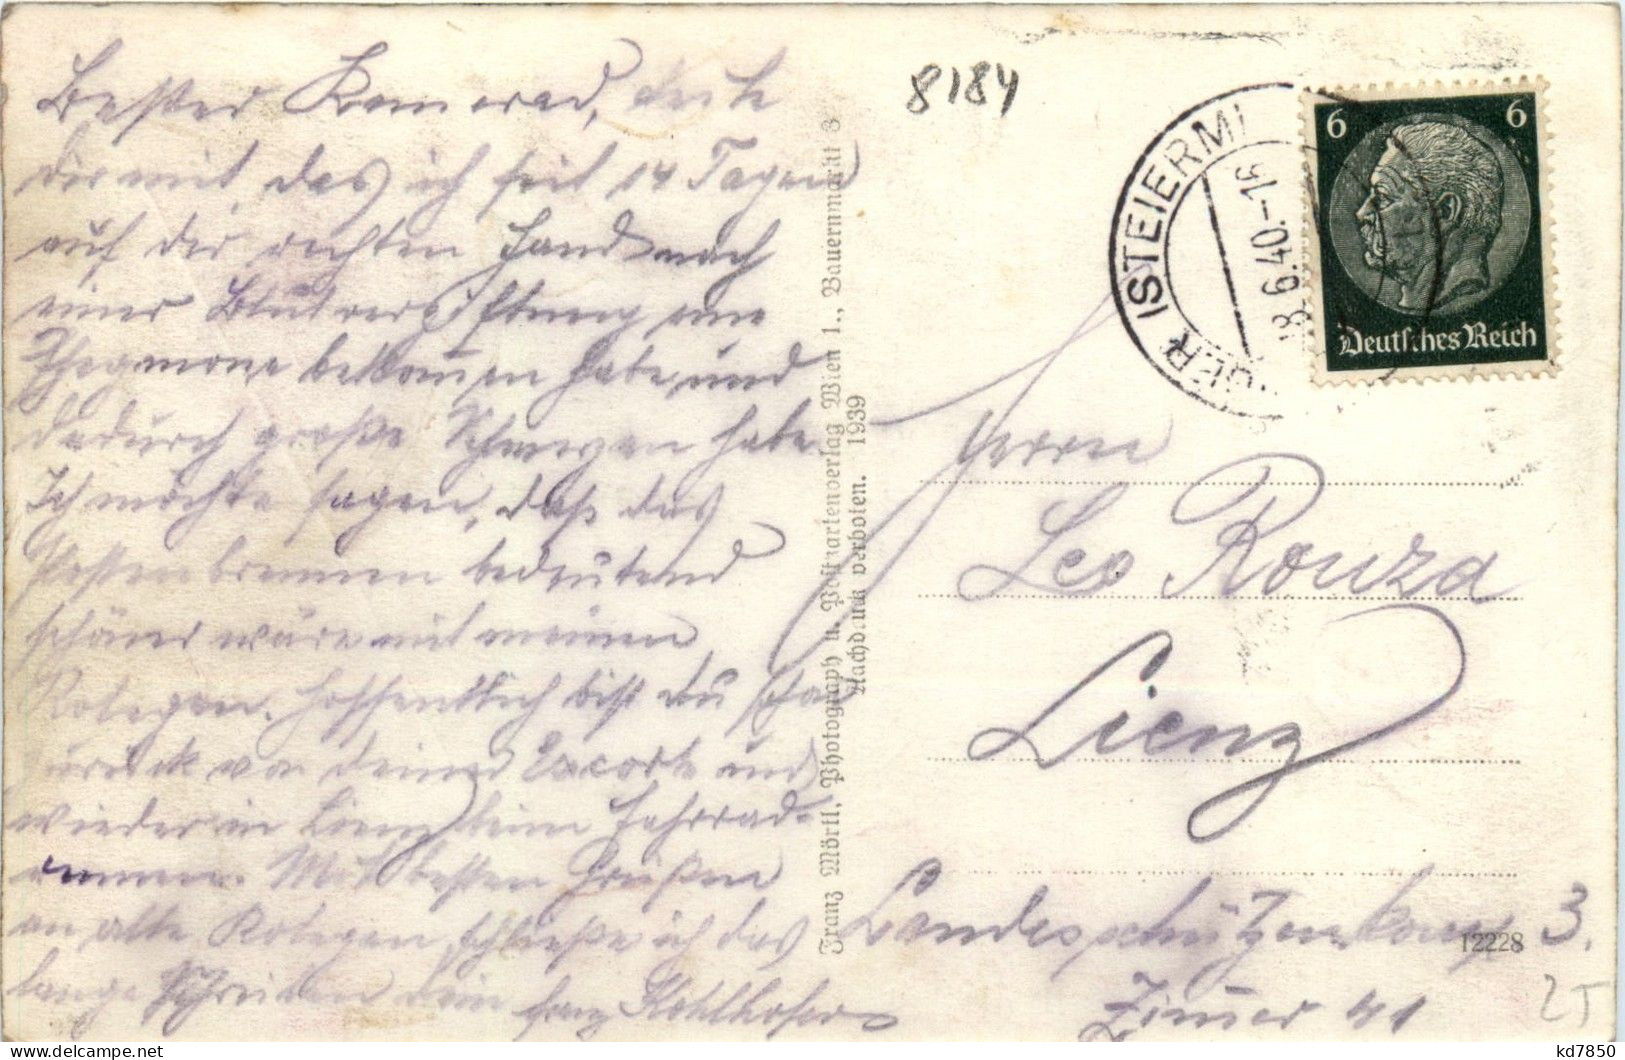 Bester Kamerad, teile
dir mit das ich seit 14 Tagen
auf der rechten Hand nach
einer Blutvergiftung eine
Flegmone bekommen habe und
dadurch große Schmerzen habe
Ich möchte sagen, daß das
Postenbrennen bedeutend
schöner wäre mit meinen
Kolegen. Hoffentlich bist du schon
zurück von deiner Escorte und
wieder in Lienz beim Fahrrad-
rennen. Mit besten Grüßen
an alle Kolegen schließe ich das
lange Schreiben dein Kohlhofer
Franz Mörtl, Photograph u. Postkartenverlag Wien 1., Bauernmarkt 3
Nachdruck verboten. 1939
8184
ISTEIERMI
8.6.40.-16
6 6
Deutsches Reich
Herrn
Leo Rouza
Lienz
Landesschützenkomp 3.
12228
Zimmer 41
25
kd7850